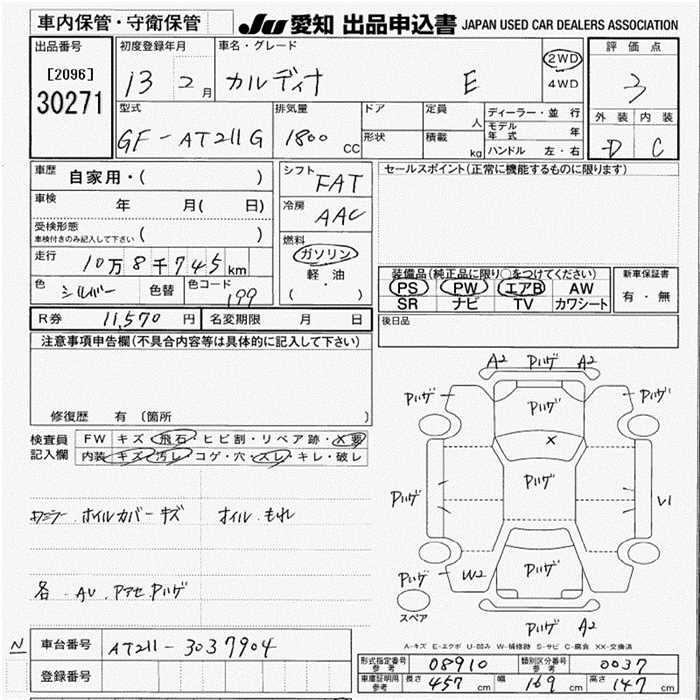 車内保管・守衛保管 JU 愛知 出品申込書 JAPAN USED CAR DEALERS ASSOCIATION
出品番号 初度登録年月 車名・グレード 2WD 評価点
[2096] 13 2月 カルディナ E 4WD 3
30271 型式 排気量 ドア 定員 人 ディーラー・並行 外装 内装
GF-AT211G 1800cc 形状 積載 kg モデル年式 年 D C
ハンドル 左・右
車歴 自家用・( ) シフト FAT セールスポイント(正常に機能するものに限ります)
車検 年 月( 日) 冷房 AAC
受検形態 ( )
車検付きのみ記入して下さい
燃料
走行 10万8千745km ガソリン 装備品(純正品に限り○をつけてください) 新車保証書
軽油 PS PW エアB AW 有・無
色 シルバー 色替 色コード 199 ( ・ ) SR ナビ TV カワシート
R券 11,570円 名変期限 月 日 後日品
注意事項申告欄(不具合内容等は具体的に記入して下さい)
修復歴 有 (箇所 )
検査員 FW キズ・飛石・ヒビ割・リペア跡・X要
記入欄 内装 キズ・汚レ・コゲ・穴・スレ・キレ・破レ
ホイルカバーキズ オイルもれ
各 AU. Pアセ Pハゲ
A2 Pハゲ A2
Pハゲ Pハゲ Pハゲ
X
Pハゲ Pハゲ V1
W2 Pハゲ
Pハゲ
スペア
Pハゲ A2
A-キズ E-エクボ U-凹み W-補修跡 S-サビ C-腐食 XX-交換済
N 車台番号 AT211-3037904
型式指定番号 参考 08910 類別区分番号 参考 0037
登録番号 車庫証明用 参考 長さ 457cm 幅 169cm 高さ 147cm